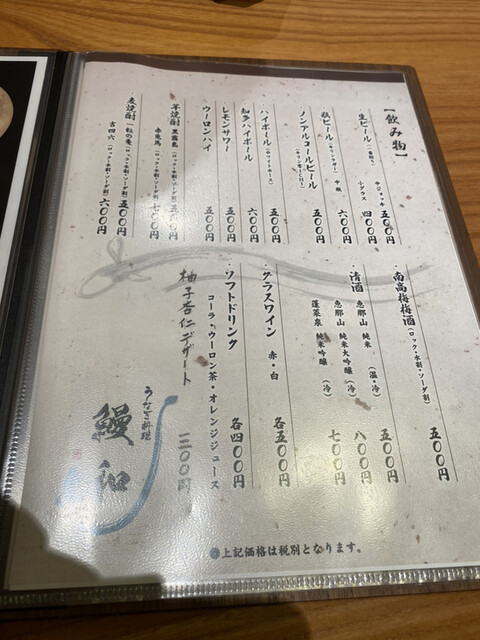 【飲み物】
生ビール（一番搾り） 中ジョッキ 五〇〇円
小グラス 四〇〇円
瓶ビール（キリンラガー） 中瓶 六〇〇円
ノンアルコールビール 五〇〇円
ハイボール（ホワイトホース） 五〇〇円
知多ハイボール 六〇〇円
レモンサワー 五〇〇円
ウーロンハイ 五〇〇円
芋焼酎 黒霧島（ロック・水割・ソーダ割） 五〇〇円
赤兎馬（ロック・水割・ソーダ割） 七〇〇円
麦焼酎 一粒の麦（ロック・水割・ソーダ割） 五〇〇円
吉四六（ロック・水割・ソーダ割） 六〇〇円
・南高梅梅酒（ロック・水割・ソーダ割） 五〇〇円
・清酒 恵那山 純米 （温・冷） 五〇〇円
恵那山 純米大吟醸 （冷） 八〇〇円
蓬莱泉 純米吟醸 （冷） 七〇〇円
・グラスワイン 赤・白 各五〇〇円
・ソフトドリンク
コーラ・ウーロン茶・オレンジジュース 各四〇〇円
柚子杏仁デザート 三〇〇円
うなぎ料理
鰻和
◎上記価格は税別となります。